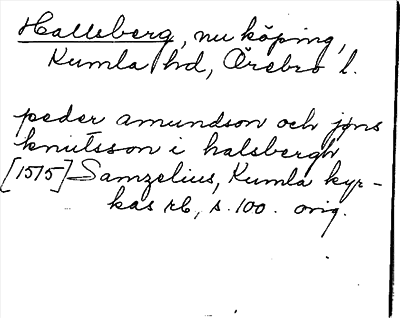 Hallsberg, nu köping,
Kumla hd, Örebro l.
peder amundson och jøns
knutsson i halsbergh
[1515] Samzelius, Kumla kyr-
kas rb, s. 100. orig.